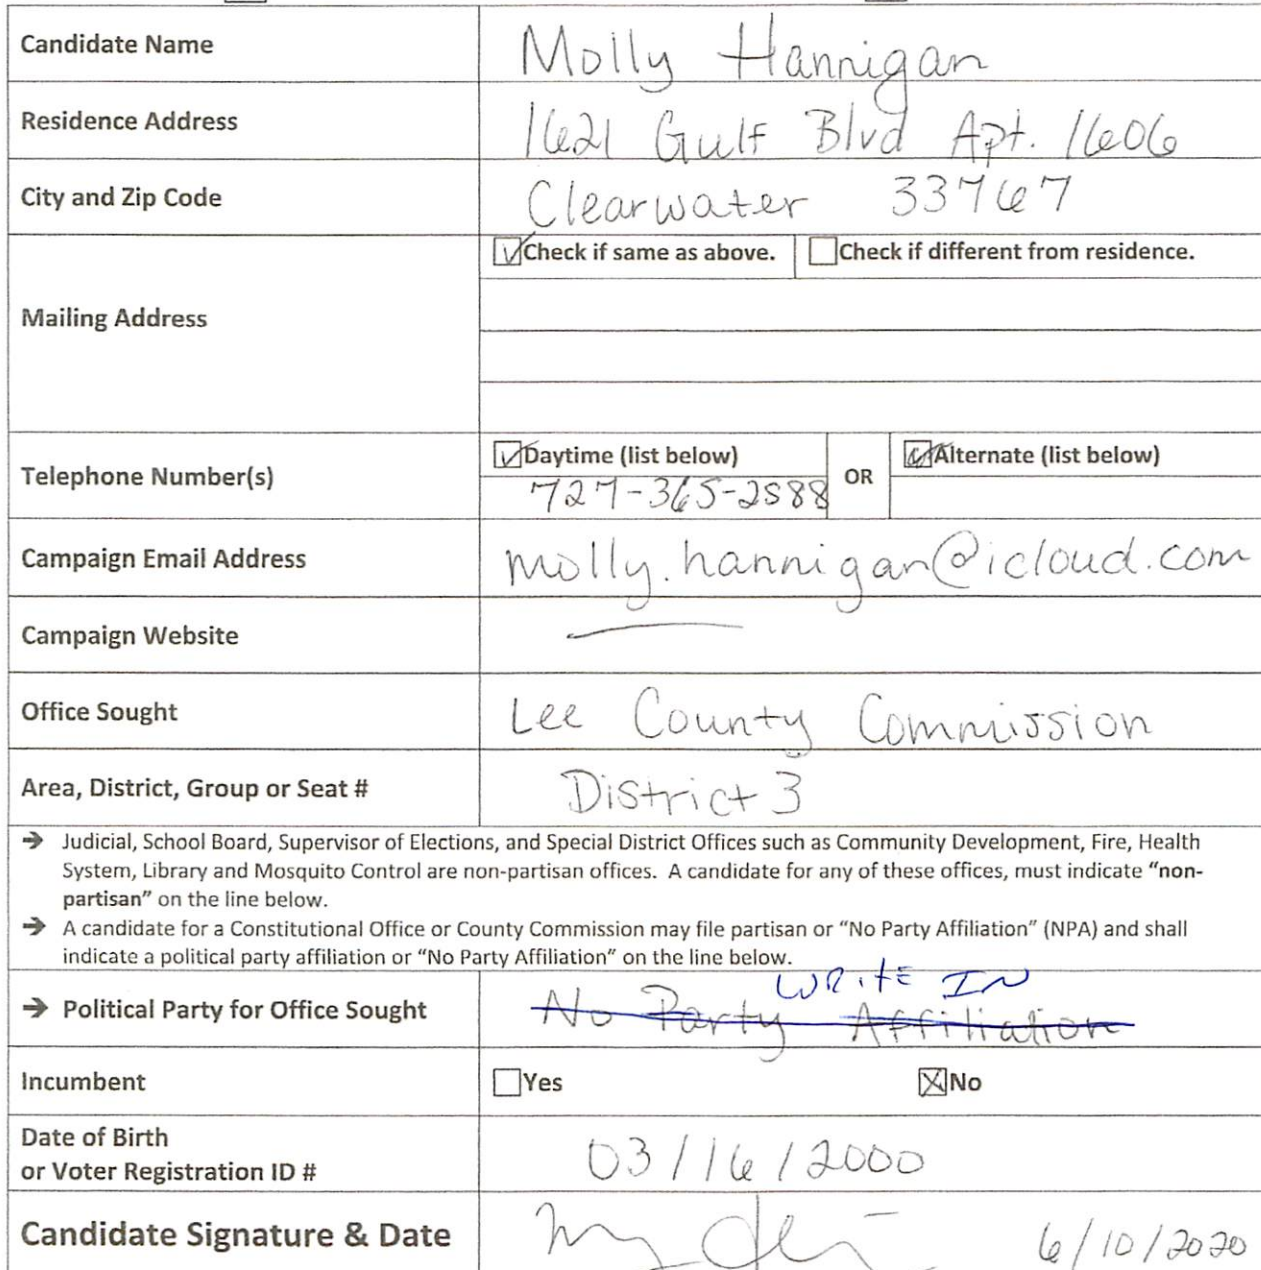 Candidate Name Molly Hannigan
Residence Address 1621 Gulf Blvd Apt. 1606
City and Zip Code Clearwater 33767
Check if same as above. Check if different from residence.
Mailing Address
Daytime (list below) OR Alternate (list below)
Telephone Number(s) 727-365-2588
Campaign Email Address molly.hannigan@icloud.com
Campaign Website
Office Sought Lee County Commission
Area, District, Group or Seat # District 3
→ Judicial, School Board, Supervisor of Elections, and Special District Offices such as Community Development, Fire, Health
System, Library and Mosquito Control are non-partisan offices. A candidate for any of these offices, must indicate "non-
partisan" on the line below.
→ A candidate for a Constitutional Office or County Commission may file partisan or "No Party Affiliation" (NPA) and shall
indicate a political party affiliation or "No Party Affiliation" on the line below.
WRITE IN
→ Political Party for Office Sought No Party Affiliation
Incumbent Yes No
Date of Birth
or Voter Registration ID # 03/16/2000
Candidate Signature & Date 6/10/2020